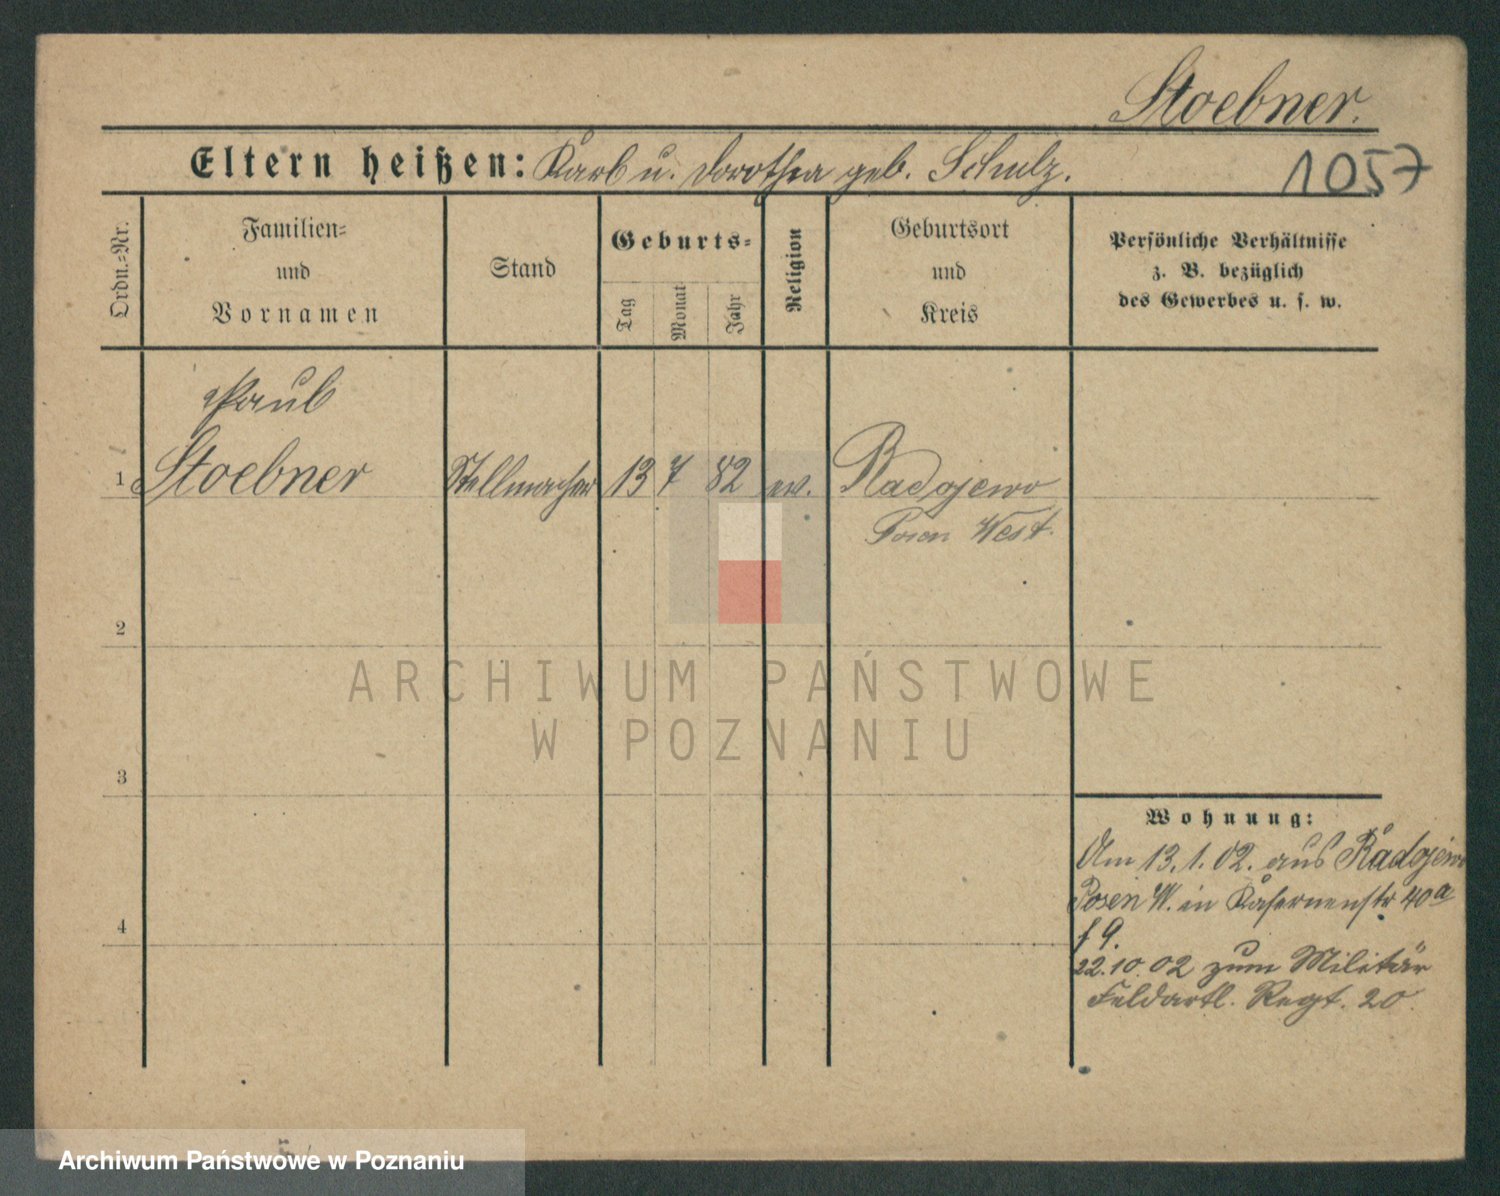 Stoebner.
Eltern heißen: Karl u. Dorothea geb. Schulz.
1057
Ordn.-Nr.
Familien-
und
Vornamen
Stand
Geburts-
Tag
Monat
Jahr
Religion
Geburtsort
und
Kreis
Persönliche Verhältnisse
z. B. bezüglich
des Gewerbes u. s. w.
Paul
1 Stoebner Stellmacher 13 7 82 ev. Radojewo
Posen West.
2
3
4
Wohnung:
Am 13.1.02. aus Radojewo
Posen W. in Kasernenstr 40a
f 9.
22.10.02 zum Militär
Feldartl. Regt. 20.
ARCHIWUM PAŃSTWOWE
W POZNANIU
Archiwum Państwowe w Poznaniu